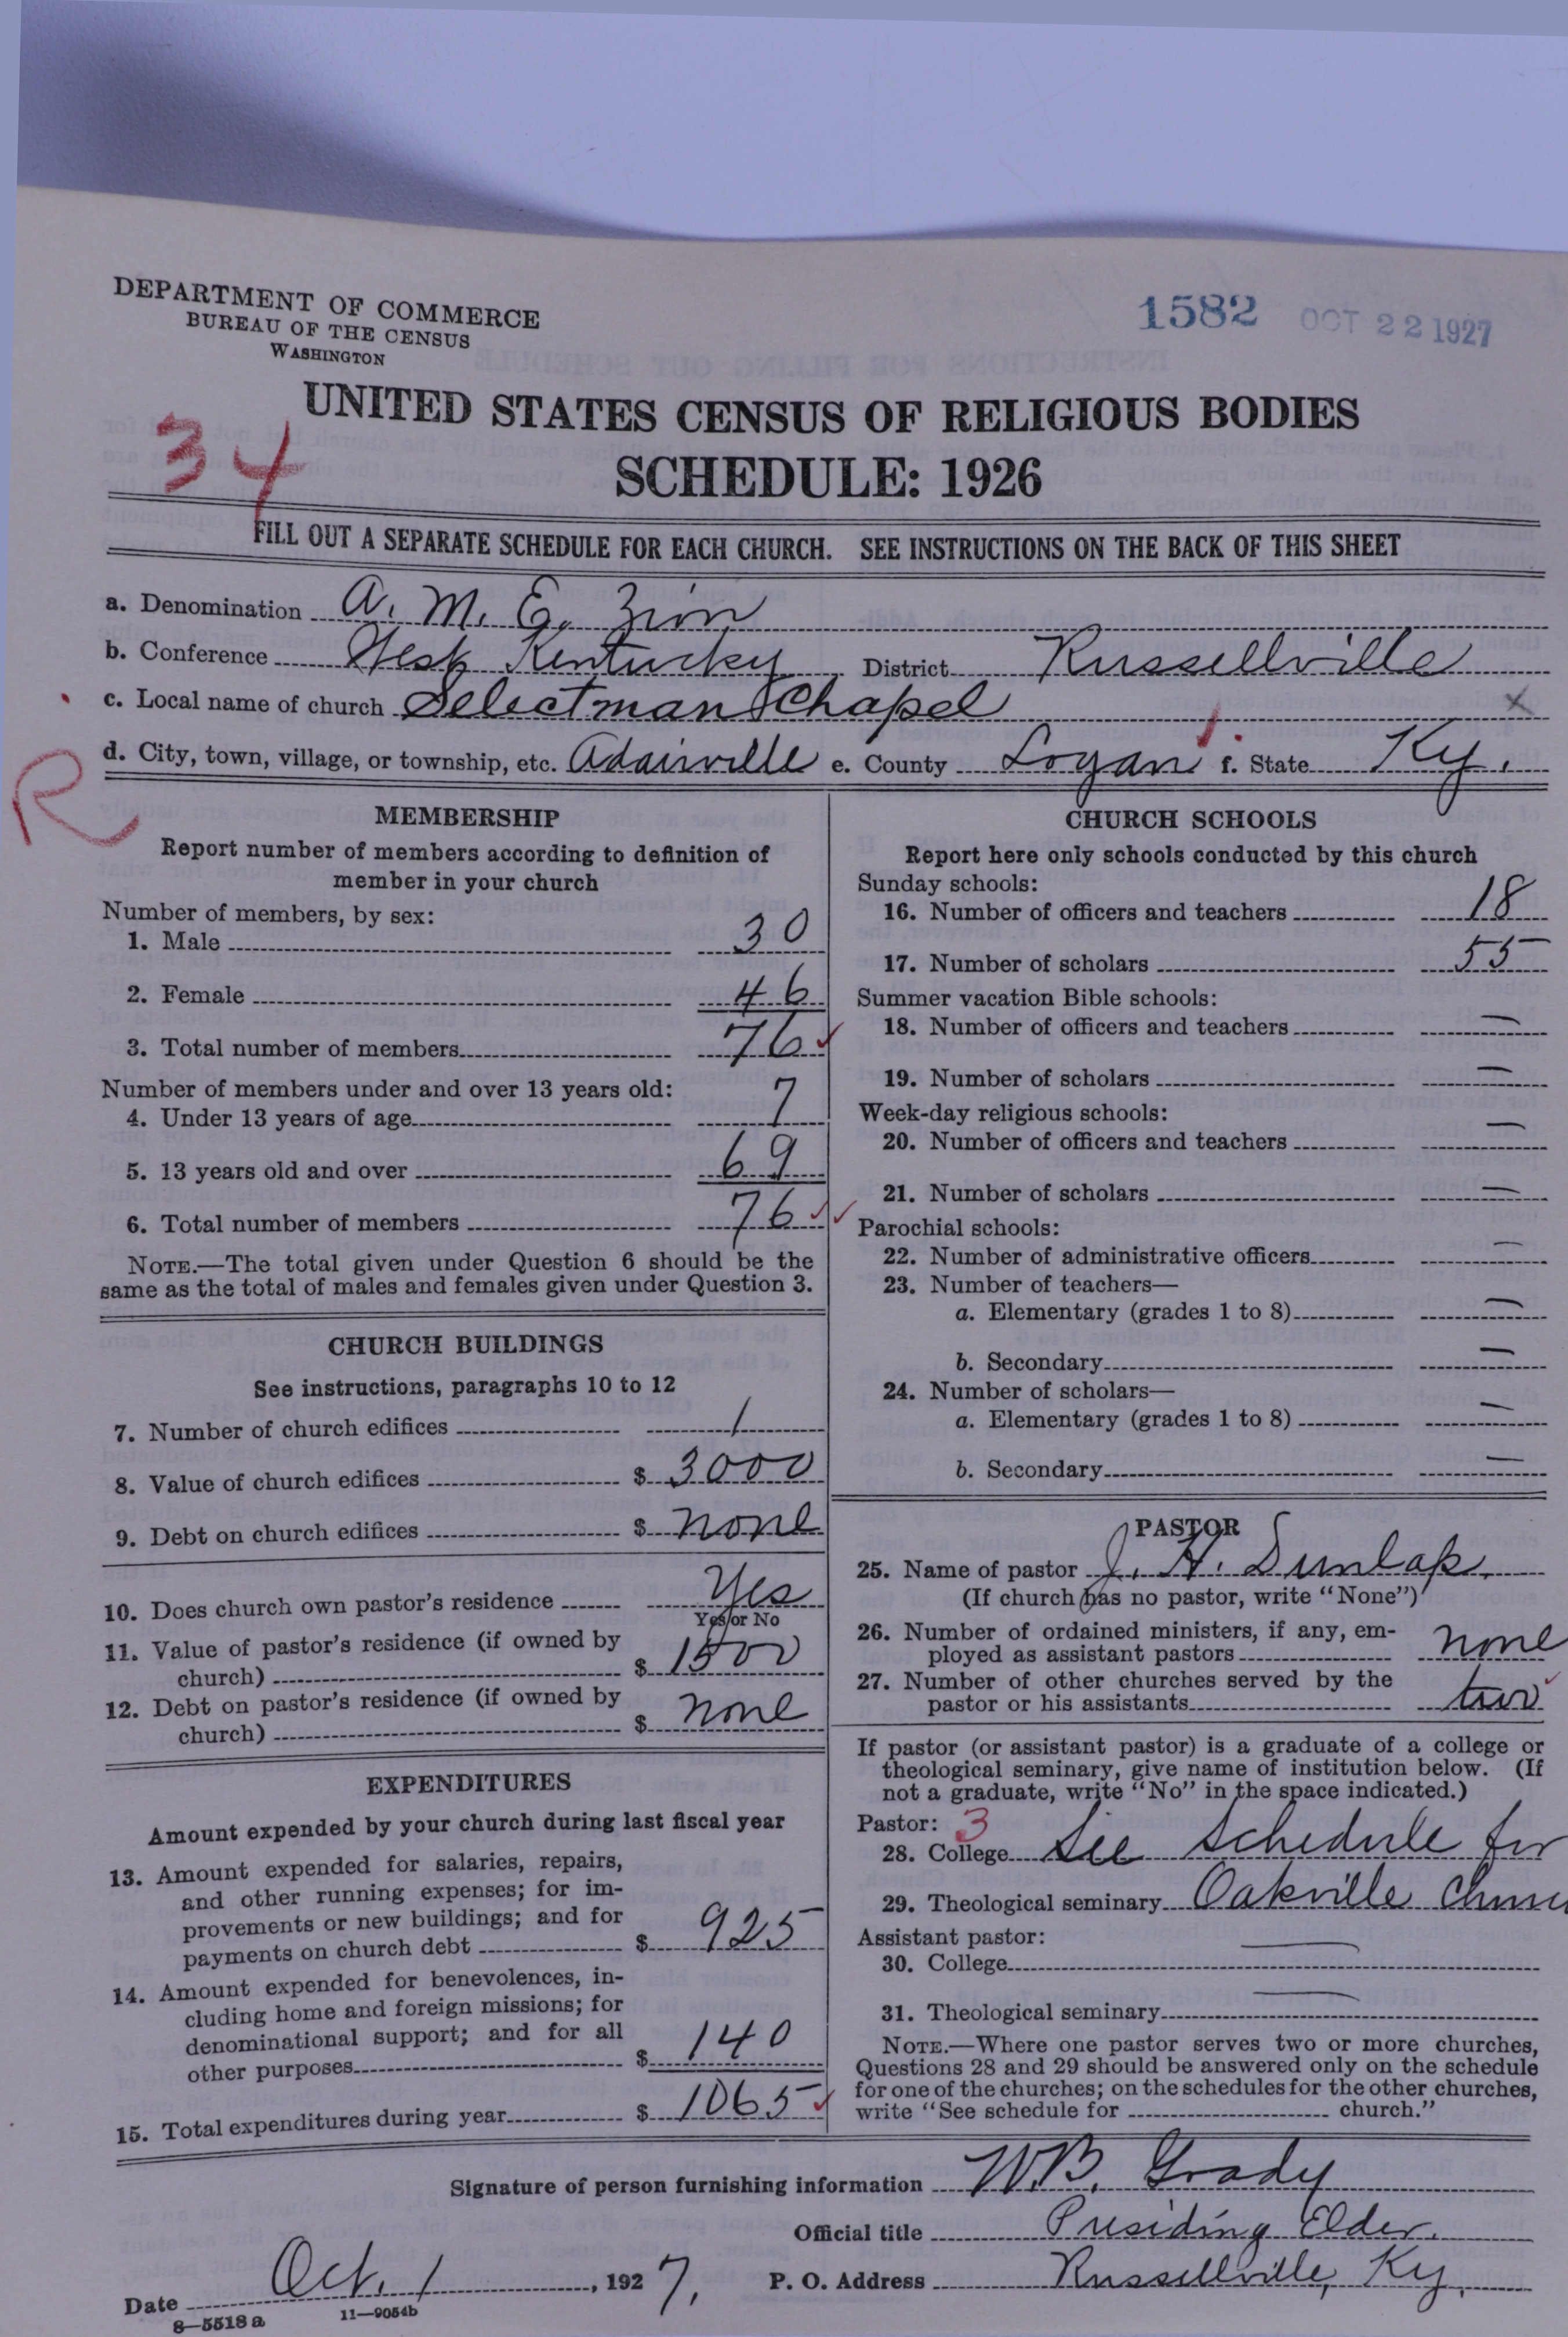 DEPARTMENT OF COMMERCE
BUREAU OF THE CENSUS
WASHINGTON
1582 OCT 22 1927
UNITED STATES CENSUS OF RELIGIOUS BODIES
34
SCHEDULE: 1926
FILL OUT A SEPARATE SCHEDULE FOR EACH CHURCH. SEE INSTRUCTIONS ON THE BACK OF THIS SHEET
a. Denomination A. M. E. Zion
b. Conference West Kentucky District Russellville
c. Local name of church Selectman Chapel x
d. City, town, village, or township, etc. Adairville e. County Logan f. State Ky.
R
MEMBERSHIP
Report number of members according to definition of
member in your church
Number of members, by sex:
1. Male 30
2. Female 46
3. Total number of members 76
Number of members under and over 13 years old:
4. Under 13 years of age 7
5. 13 years old and over 69
6. Total number of members 76
NOTE.—The total given under Question 6 should be the
same as the total of males and females given under Question 3.
CHURCH BUILDINGS
See instructions, paragraphs 10 to 12
7. Number of church edifices 1
8. Value of church edifices $ 3000
9. Debt on church edifices $ none
10. Does church own pastor's residence Yes
Yes or No
11. Value of pastor's residence (if owned by
church) $ 1500
12. Debt on pastor's residence (if owned by
church) $ none
EXPENDITURES
Amount expended by your church during last fiscal year
13. Amount expended for salaries, repairs,
and other running expenses; for im-
provements or new buildings; and for
payments on church debt $ 925
14. Amount expended for benevolences, in-
cluding home and foreign missions; for
denominational support; and for all
other purposes $ 140
15. Total expenditures during year $ 1065
CHURCH SCHOOLS
Report here only schools conducted by this church
Sunday schools:
16. Number of officers and teachers 18
17. Number of scholars 55
Summer vacation Bible schools:
18. Number of officers and teachers —
19. Number of scholars —
Week-day religious schools:
20. Number of officers and teachers —
21. Number of scholars —
Parochial schools:
22. Number of administrative officers —
23. Number of teachers—
a. Elementary (grades 1 to 8) —
b. Secondary —
24. Number of scholars—
a. Elementary (grades 1 to 8) —
b. Secondary —
PASTOR
25. Name of pastor J. H. Dunlap.
(If church has no pastor, write "None")
26. Number of ordained ministers, if any, em-
ployed as assistant pastors none
27. Number of other churches served by the
pastor or his assistants two
If pastor (or assistant pastor) is a graduate of a college or
theological seminary, give name of institution below. (If
not a graduate, write "No" in the space indicated.)
Pastor: 3
28. College See Schedule for
29. Theological seminary Oakville
Assistant pastor:
30. College —
31. Theological seminary —
NOTE.—Where one pastor serves two or more churches,
Questions 28 and 29 should be answered only on the schedule
for one of the churches; on the schedules for the other churches,
write "See schedule for church."
Signature of person furnishing information W. B. Grady
Official title Presiding Elder.
Date Oct. 1, 1927. P. O. Address Russellville, Ky.
8—5518 a 11—9054b